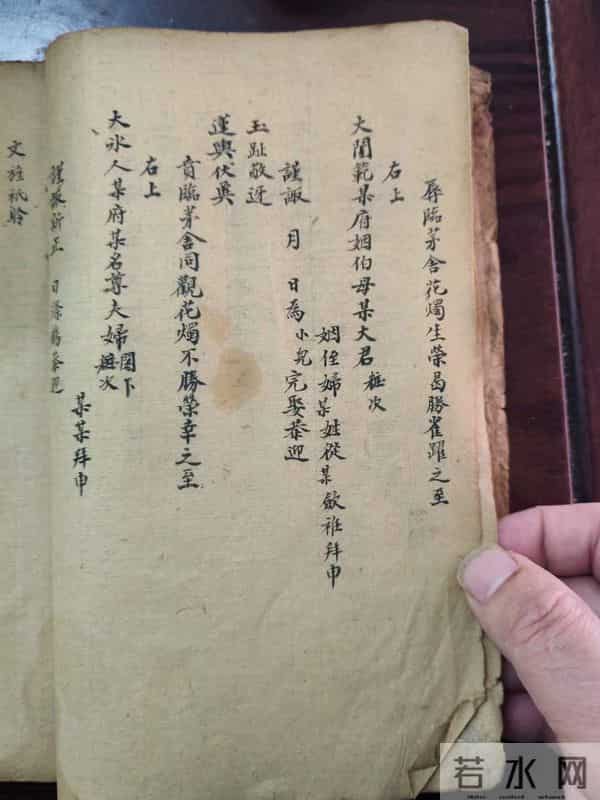 辱臨茅舍花燭生榮曷勝雀躍之至
右上
大閫範某府姻伯母某大君粧次
姻侄婦某姓從某斂袵拜申
謹諏 月 日為小兒完娶恭迎
玉趾敬迓
運輿伏冀
賁臨茅舍同觀花燭不勝榮幸之至
右上
大冰人某府某名尊夫婦閣下粧次
某某拜申
謹諏新正 日恭迎
文旌祇聆
若水网